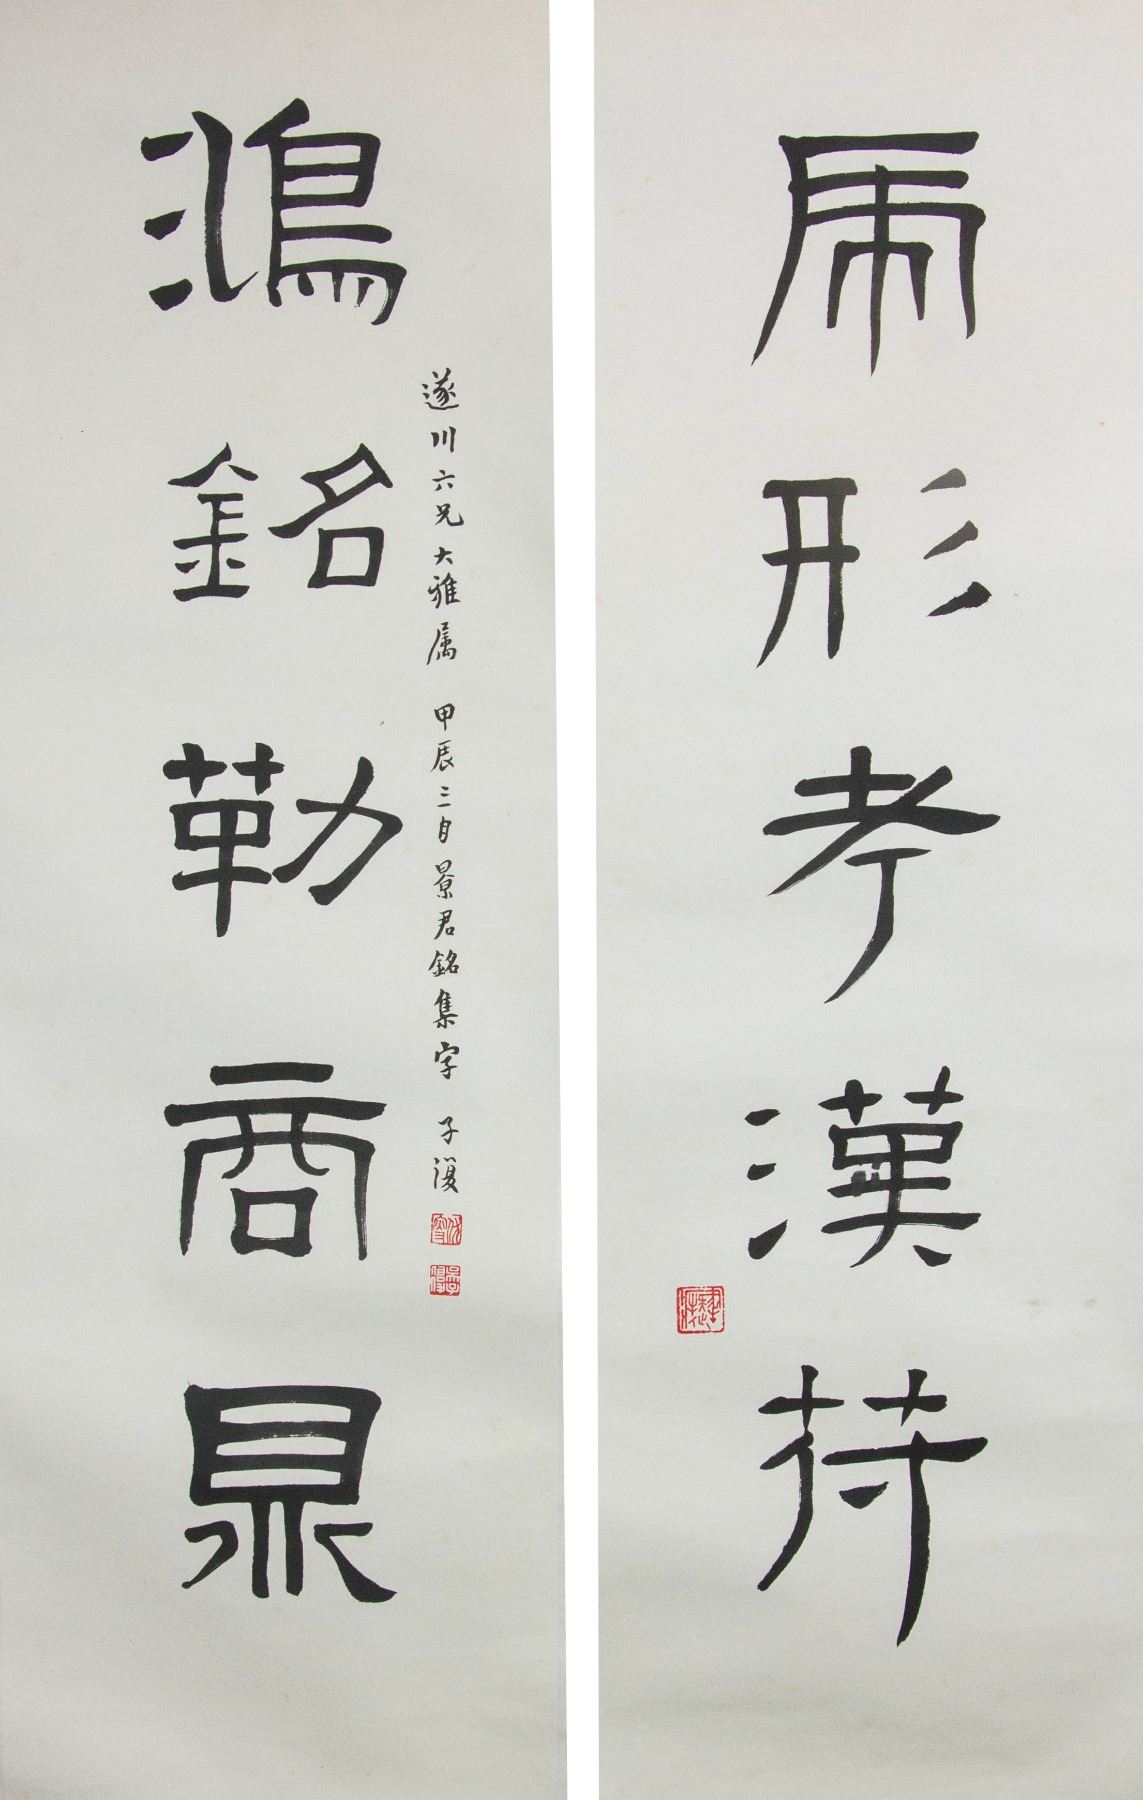 虎形考漢符
鴻銘勒商鼎
遂川六兄大雅属 甲辰三月 景君銘集字 子復